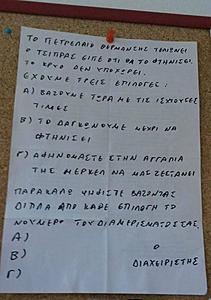 ΤΟ ΠΕΤΡΕΛΑΙΟ ΘΕΡΜΑΝΣΗΣ ΤΕΛΕΙΩΝΕΙ
Ο ΤΣΙΠΡΑΣ ΕΙΠΕ ΟΤΙ ΘΑ ΤΟ ΦΤΗΝΙΣΕΙ.
ΤΟ ΚΡΥΟ ΔΕΝ ΥΠΟΧΩΡΕΙ.
ΕΧΟΥΜΕ ΤΡΕΙΣ ΕΠΙΛΟΓΕΣ:
Α) ΒΑΖΟΥΜΕ ΤΩΡΑ ΜΕ ΤΙΣ ΙΣΧΥΟΥΣΕΣ
ΤΙΜΕΣ
Β) ΤΟ ΠΑΓΩΝΟΥΜΕ ΜΕΧΡΙ ΝΑ
ΦΤΗΝΙΣΕΙ
Γ) ΑΦΗΝΟΜΑΣΤΕ ΣΤΗΝ ΑΓΚΑΛΙΑ
ΤΗΣ ΜΕΡΚΕΛ ΝΑ ΜΑΣ ΖΕΣΤΑΝΕΙ
ΠΑΡΑΚΑΛΩ ΨΗΦΙΣΤΕ ΒΑΖΟΝΤΑΣ
ΔΙΠΛΑ ΑΠΟ ΚΑΘΕ ΕΠΙΛΟΓΗ ΤΟ
ΝΟΥΜΕΡΟ ΤΟΥ ΔΙΑΜΕΡΙΣΜΑΤΟΣ ΣΑΣ.
Α)
Β)
Γ)
Ο
ΔΙΑΧΕΙΡΙΣΤΗΣ